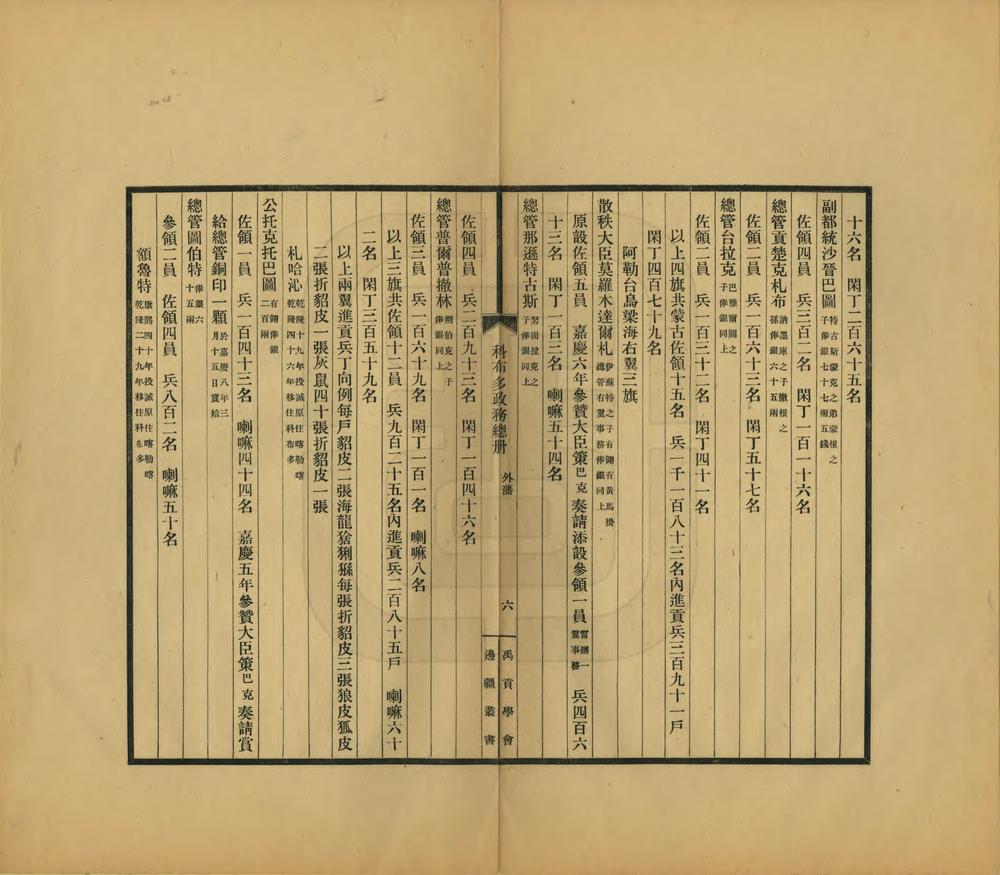 十六名　閑丁二百六十五名
副都統沙晉巴圖特古斯蒙克之弟蒙根之子俸銀七十七兩五錢
佐領四員　兵三百二名　閑丁一百一十六名
總管貢楚克札布訥墨庫之子撤根之孫俸銀六十五兩
佐領二員　兵一百六十三名　閑丁五十七名
總管台拉克巴雅爾圖之子俸銀同上
佐領二員　兵一百三十二名　閑丁四十一名
以上四旗共蒙古佐領十五名　兵一千一百八十三名內進貢兵三百九十一戶
閑丁四百七十九名
阿勒台烏梁海右翼三旗
散秩大臣莫羅木達爾札伊蘇特之子有翎有黃馬褂總管右翼事務俸銀同上
原設佐領五員　嘉慶六年參贊大臣策巴克奏請添設參領一員幫辦一翼事務　兵四百六
十三名　閑丁一百三名　喇嘛五十四名
總管那遜特古斯努固拉克之子俸銀同上
科布多政務總册　外藩　六　禹貢學會邊疆叢書
佐領四員　兵二百九十三名　閑丁一百四十六名
總管普爾普撤林俸銀同上
佐領三員　兵一百六十九名　閑丁一百一名　喇嘛八名
以上三旗共佐領十二員　兵九百二十五名內進貢兵二百八十五戶　喇嘛六十
二名　閑丁三百五十九名
以上兩翼進貢兵丁向例每戶貂皮二張海龍猞猁猻每張折貂皮三張狼皮狐皮
二張折貂皮一張灰鼠四十張折貂皮一張
札哈沁乾隆十九年投誠原住喀勒喀乾隆四十六年移住科布多
公托克托巴圖有翎俸銀二百兩
佐領一員　兵一百四十三名　喇嘛四十四名　嘉慶五年參贊大臣策巴克奏請賞
給總管銅印一顆於嘉慶八年三月十五日賞給
總管圖伯特俸銀六十五兩
參領二員　佐領四員　兵八百二名　喇嘛五十名
額魯特康熙四十年投誠原住喀勒喀乾隆二十九年移住科布多